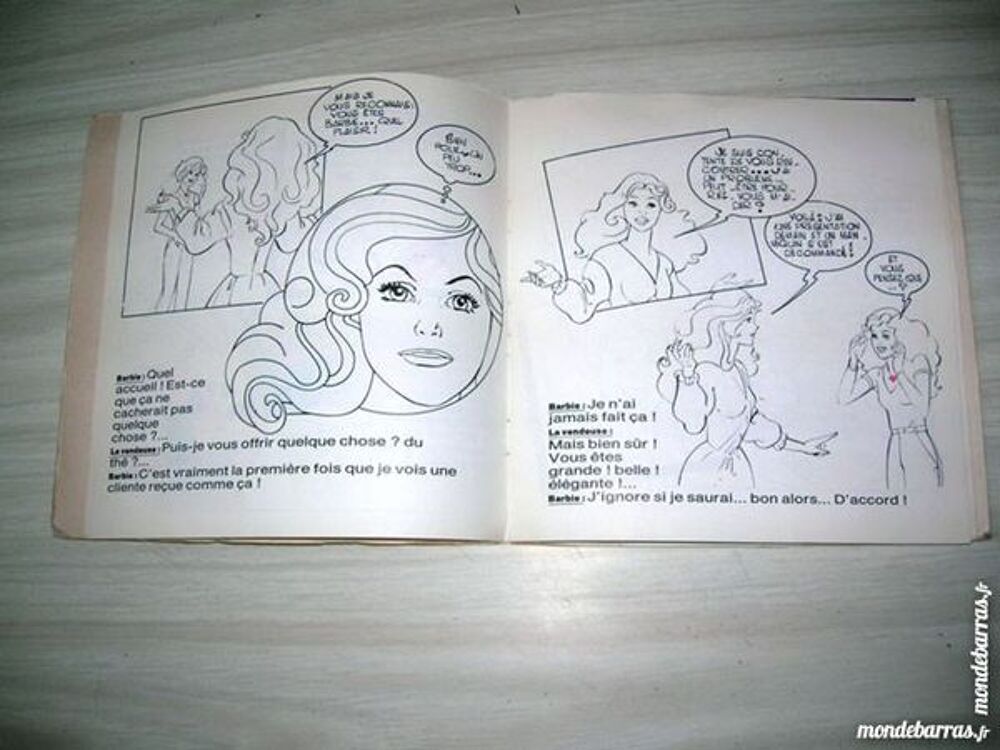 MAIS JE
VOUS RECONNAIS.
VOUS ÊTES
BARBIE... QUEL
PLAISIR !
BIEN
POLIE... UN
PEU
TROP...
Barbie : Quel
accueil ! Est-ce
que ça ne
cacherait pas
quelque
chose ?...
La vendeuse : Puis-je vous offrir quelque chose ? du
thé ?...
Barbie : C'est vraiment la première fois que je vois une
cliente reçue comme ça !
JE SUIS CON-
TENTE DE VOUS REN-
CONTRER... J'AI
UN PROBLÈME...
PEUT-ÊTRE POUR-
RIEZ-VOUS M'AI-
DER ?
VOILÀ : J'AI
UNE PRÉSENTATION
DEMAIN ET UN MAN-
NEQUIN S'EST
DÉCOMMANDÉ !
ET
VOUS
PENSEZ QUE
?
Barbie : Je n'ai
jamais fait ça !
La vendeuse :
Mais bien sûr !
Vous êtes
grande ! belle !
élégante !...
Barbie : J'ignore si je saurai... bon alors... D'accord !
mondebarras.fr
mondebarras.fr